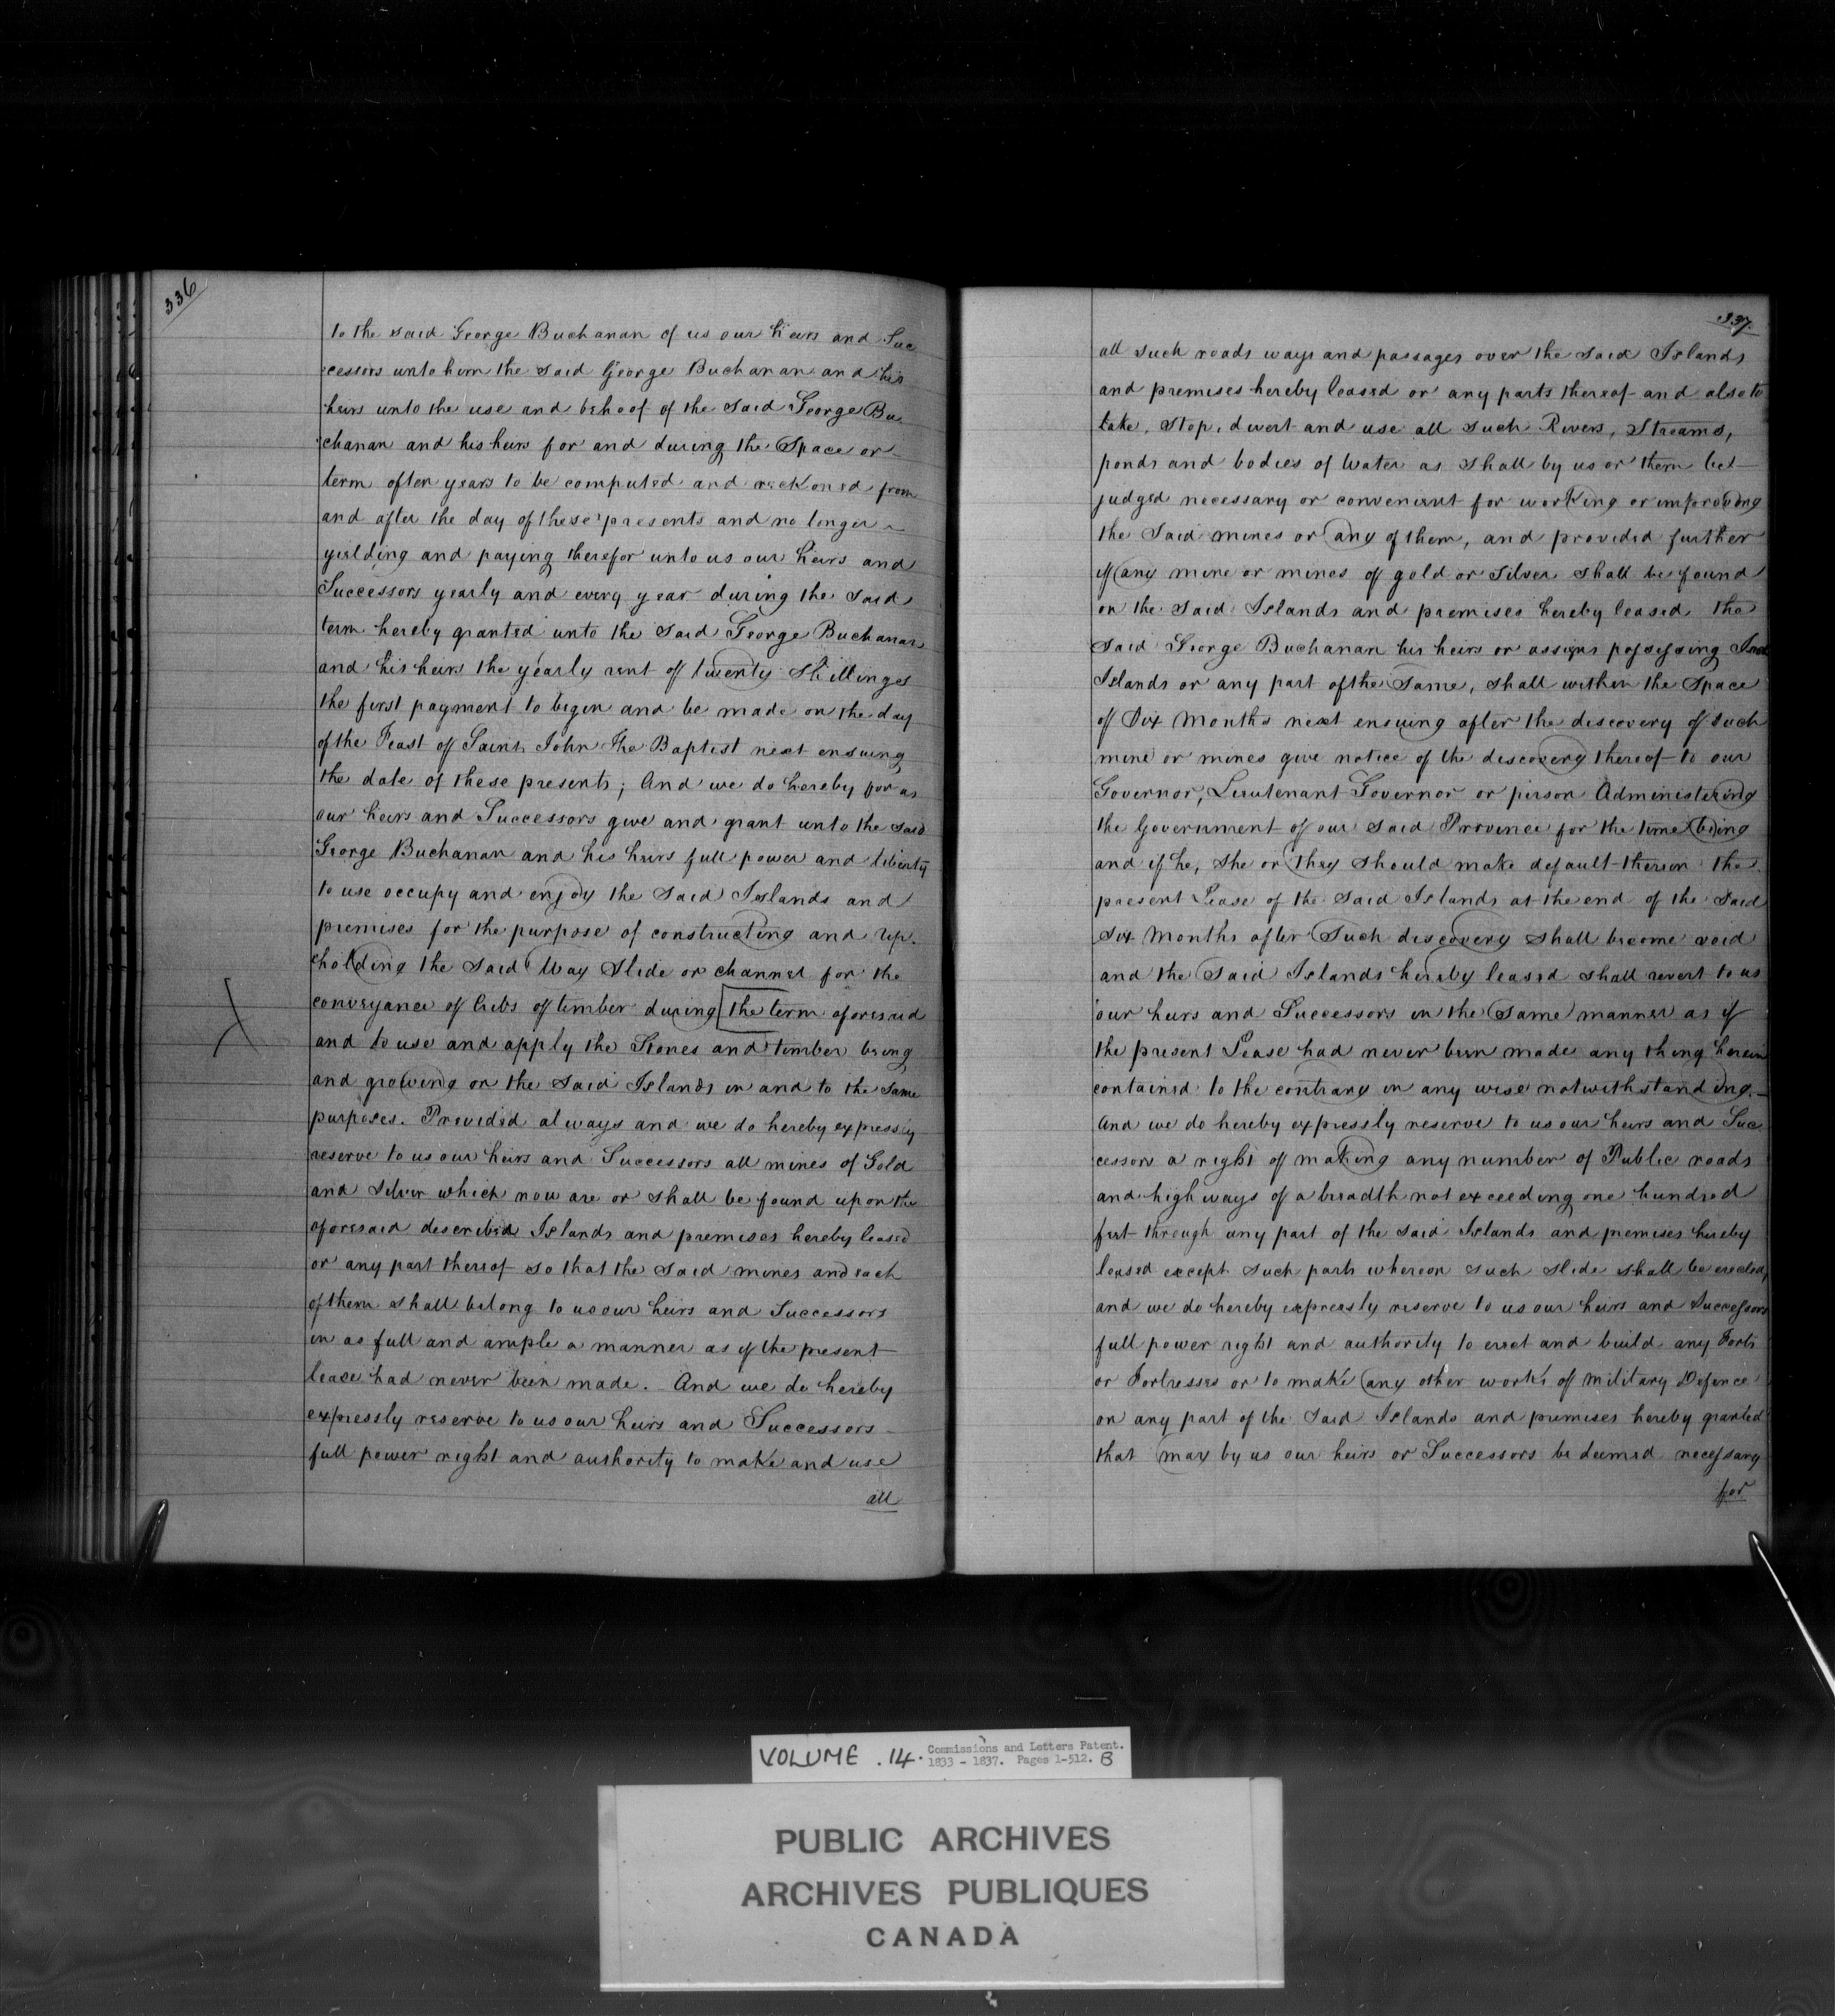 336
to the said George Buchanan of us our heirs and Suc
cessors unto him the said George Buchanan and his
heirs unto the use and behoof of the said George Bu
chanan and his heirs for and during the Space or
term of ten years to be computed and reckoned from
and after the day of these presents and no longer
yielding and paying therefor unto us our heirs and
Successors yearly and every year during the said
term hereby granted unto the said George Buchanan
and his heirs the yearly rent of twenty Shillings
the first payment to begin and be made on the day
of the Feast of Saint John the Baptist next ensuing
the date of these presents; And we do hereby for us
our heirs and Successors give and grant unto the said
George Buchanan and his heirs full power and liberty
to use occupy and enjoy the said Islands and
premises for the purpose of constructing and up
holding the said Way Slide or channel for the
conveyance of Cribs of timber during [the term aforesaid
and to use and apply the Stones and timber being
and growing on the said Islands in and to the same
purposes. Provided always and we do hereby expressly
reserve to us our heirs and Successors all mines of Gold
and Silver which now are or shall be found upon the
aforesaid described Islands and premises hereby leased
or any part thereof so that the said mines and each
of them shall belong to us our heirs and Successors
in as full and ample a manner as if the present
lease had never been made. And we do hereby
expressly reserve to us our heirs and Successors
full power right and authority to make and use
all
337
all such roads ways and passages over the said Islands
and premises hereby leased or any parts thereof and also to
take, stop, divert and use all such Rivers, Streams,
ponds and bodies of Water as shall by us or them be
judged necessary or convenient for working or improving
the said mines or any of them, and provided further
if any mine or mines of gold or silver shall be found
on the said Islands and premises hereby leased the
said George Buchanan his heirs or assigns possessing said
Islands or any part of the same, shall within the Space
of Six Months next ensuing after the discovery of such
mine or mines give notice of the discovery thereof to our
Governor, Lieutenant Governor or person Administering
the Government of our said Province for the time being
and if he, she or they should make default therein the
present Lease of the said Islands at the end of the said
six Months after such discovery shall become void
and the said Islands hereby leased shall revert to us
our heirs and Successors in the same manner as if
the present Lease had never been made any thing herein
contained to the contrary in any wise notwithstanding.
And we do hereby expressly reserve to us our heirs and Suc
cessors a right of making any number of Public roads
and highways of a breadth not exceeding one hundred
feet through any part of the said Islands and premises hereby
leased except such parts whereon such slide shall be erected,
and we do hereby expressly reserve to us our heirs and Successors
full power right and authority to erect and build any Forts
or Fortresses or to make any other works of military Defence
on any part of the said Islands and premises hereby granted
that may by us our heirs or Successors be deemed necessary
for
VOLUME .14. Commissions and Letters Patent.
1833 - 1837. Pages 1-512. B
PUBLIC ARCHIVES
ARCHIVES PUBLIQUES
CANADA